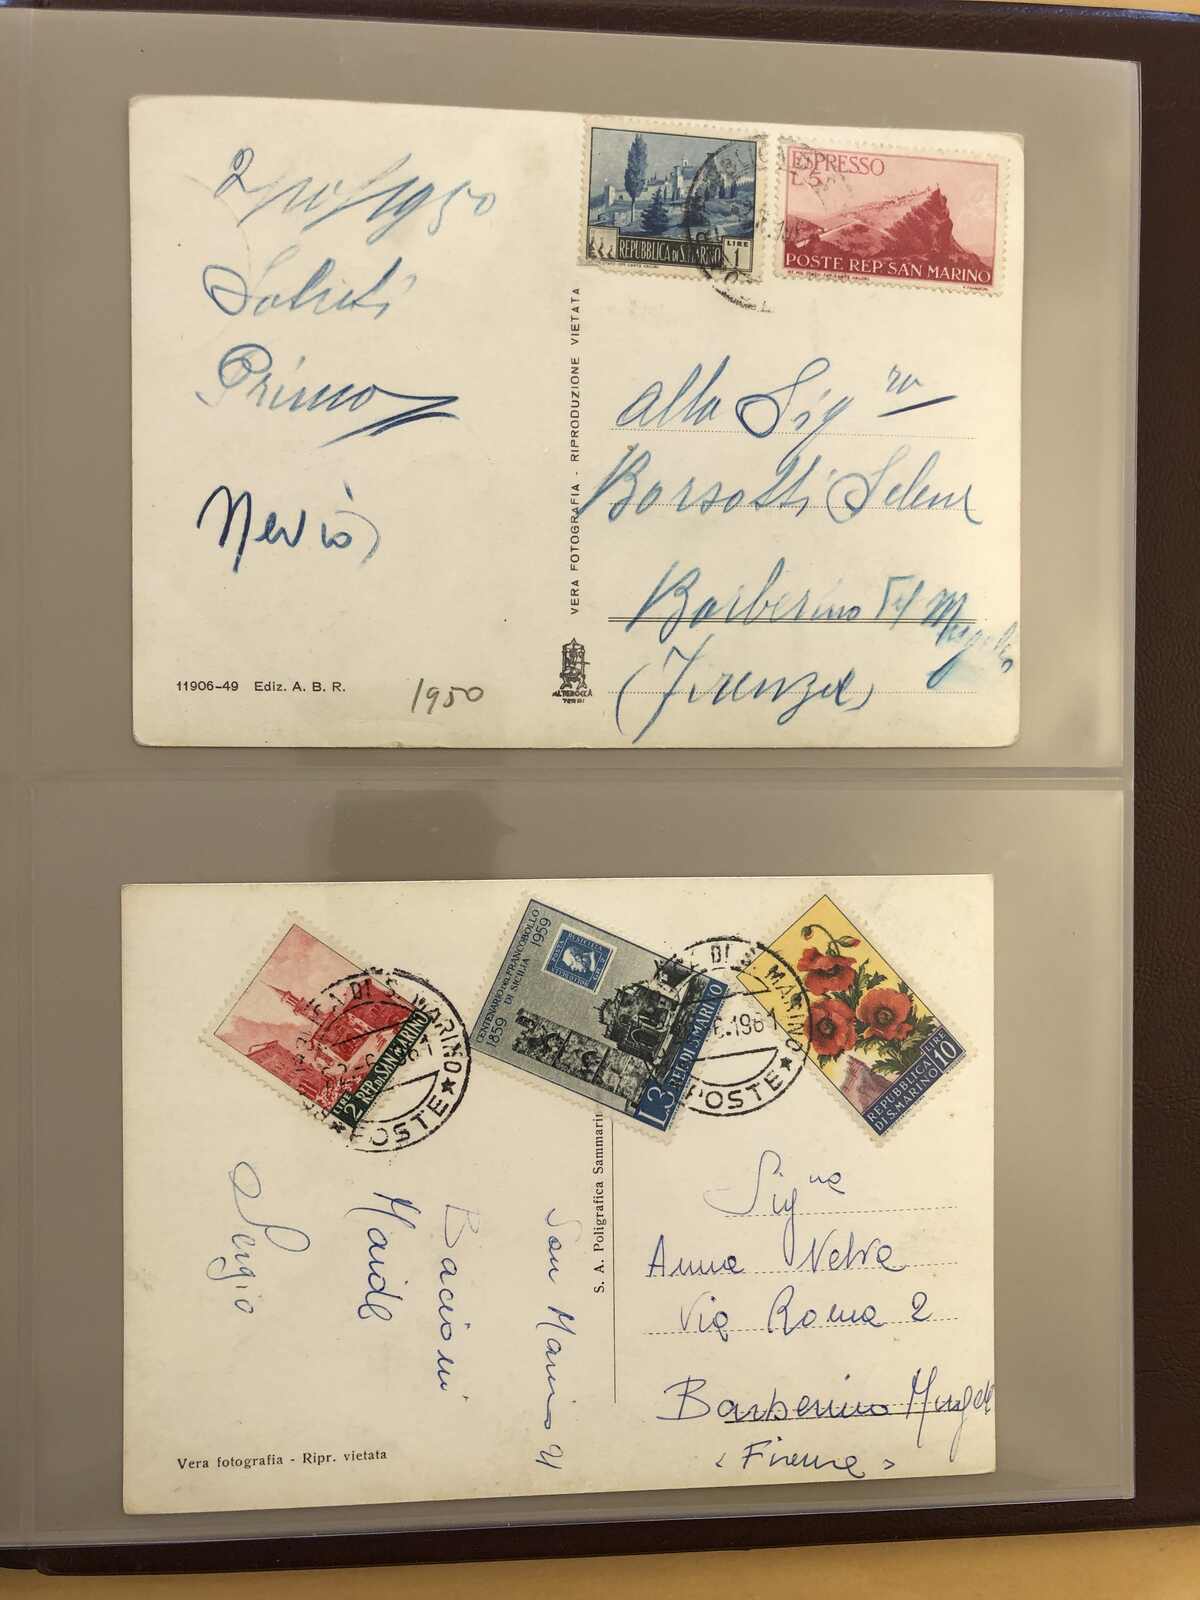 REPUBBLICA DI S. MARINO
LIRE
1
ESPRESSO
L.5
POSTE REP. SAN MARINO
2/10/1950
Saluti
Primo
Nevio
VERA FOTOGRAFIA - RIPRODUZIONE VIETATA
Alla Sig ra
Borsotti Selene
Barberino del Mugello
(Firenze)
11906-49 Ediz. A. B. R.
1950
ALTEROCCA
TERNI
LIRE
2 REP. DI SAN MARINO
CENTENARIO DEL FRANCOBOLLO
DI SICILIA
1859 1959
L.3 REP. DI S. MARINO
REPUBBLICA
DI S. MARINO
LIRE
10
POSTE
DI S. MARINO
POSTE
S. A. Poligrafica Sammarin
San Marino
Bacioni
Sergio
Sig na
Anna
Via Roma 2
Barberino Mugel
(Firenze)
Vera fotografia - Ripr. vietata